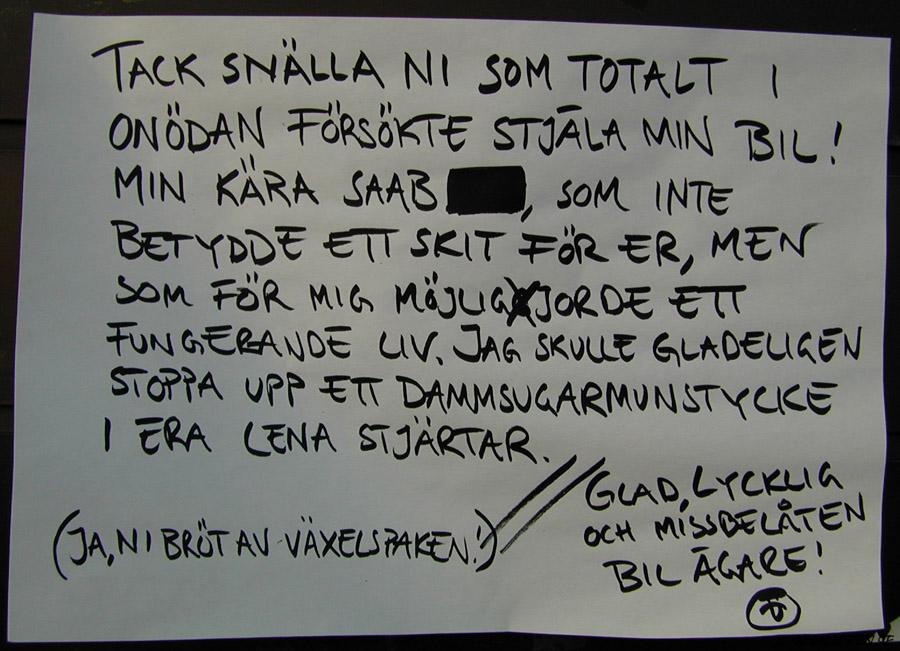 TACK SNÄLLA NI SOM TOTALT I
ONÖDAN FÖRSÖKTE STJÄLA MIN BIL!
MIN KÄRA SAAB , SOM INTE
BETYDDE ETT SKIT FÖR ER, MEN
SOM FÖR MIG MÖJLIGJORDE ETT
FUNGERANDE LIV. JAG SKULLE GLADELIGEN
STOPPA UPP ETT DAMMSUGARMUNSTYCKE
I ERA LENA STJÄRTAR.
GLAD, LYCKLIG
OCH MISSBELÅTEN
BIL ÄGARE!
(JA, NI BRÖT AV VÄXELSPAKEN!)